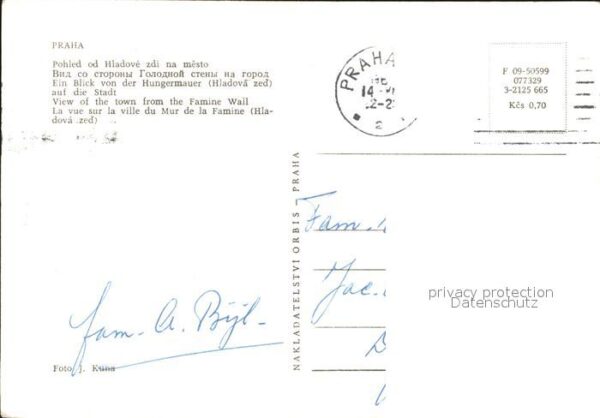 PRAHA
Pohled od Hladové zdi na město
Вид со стороны Голодной стены на город
Ein Blick von der Hungermauer (Hladová zeď)
auf die Stadt
View of the town from the Famine Wall
La vue sur la ville du Mur de la Famine (Hla-
dová zeď)
fam. A. Bijl.
Foto J. Kuna
NAKLADATELSTVÍ ORBIS – PRAHA
PRAHA
14
2
F 09-50599
077329
3-2125 665
Kčs 0,70
Fam.
Jac.
privacy protection
Datenschutz